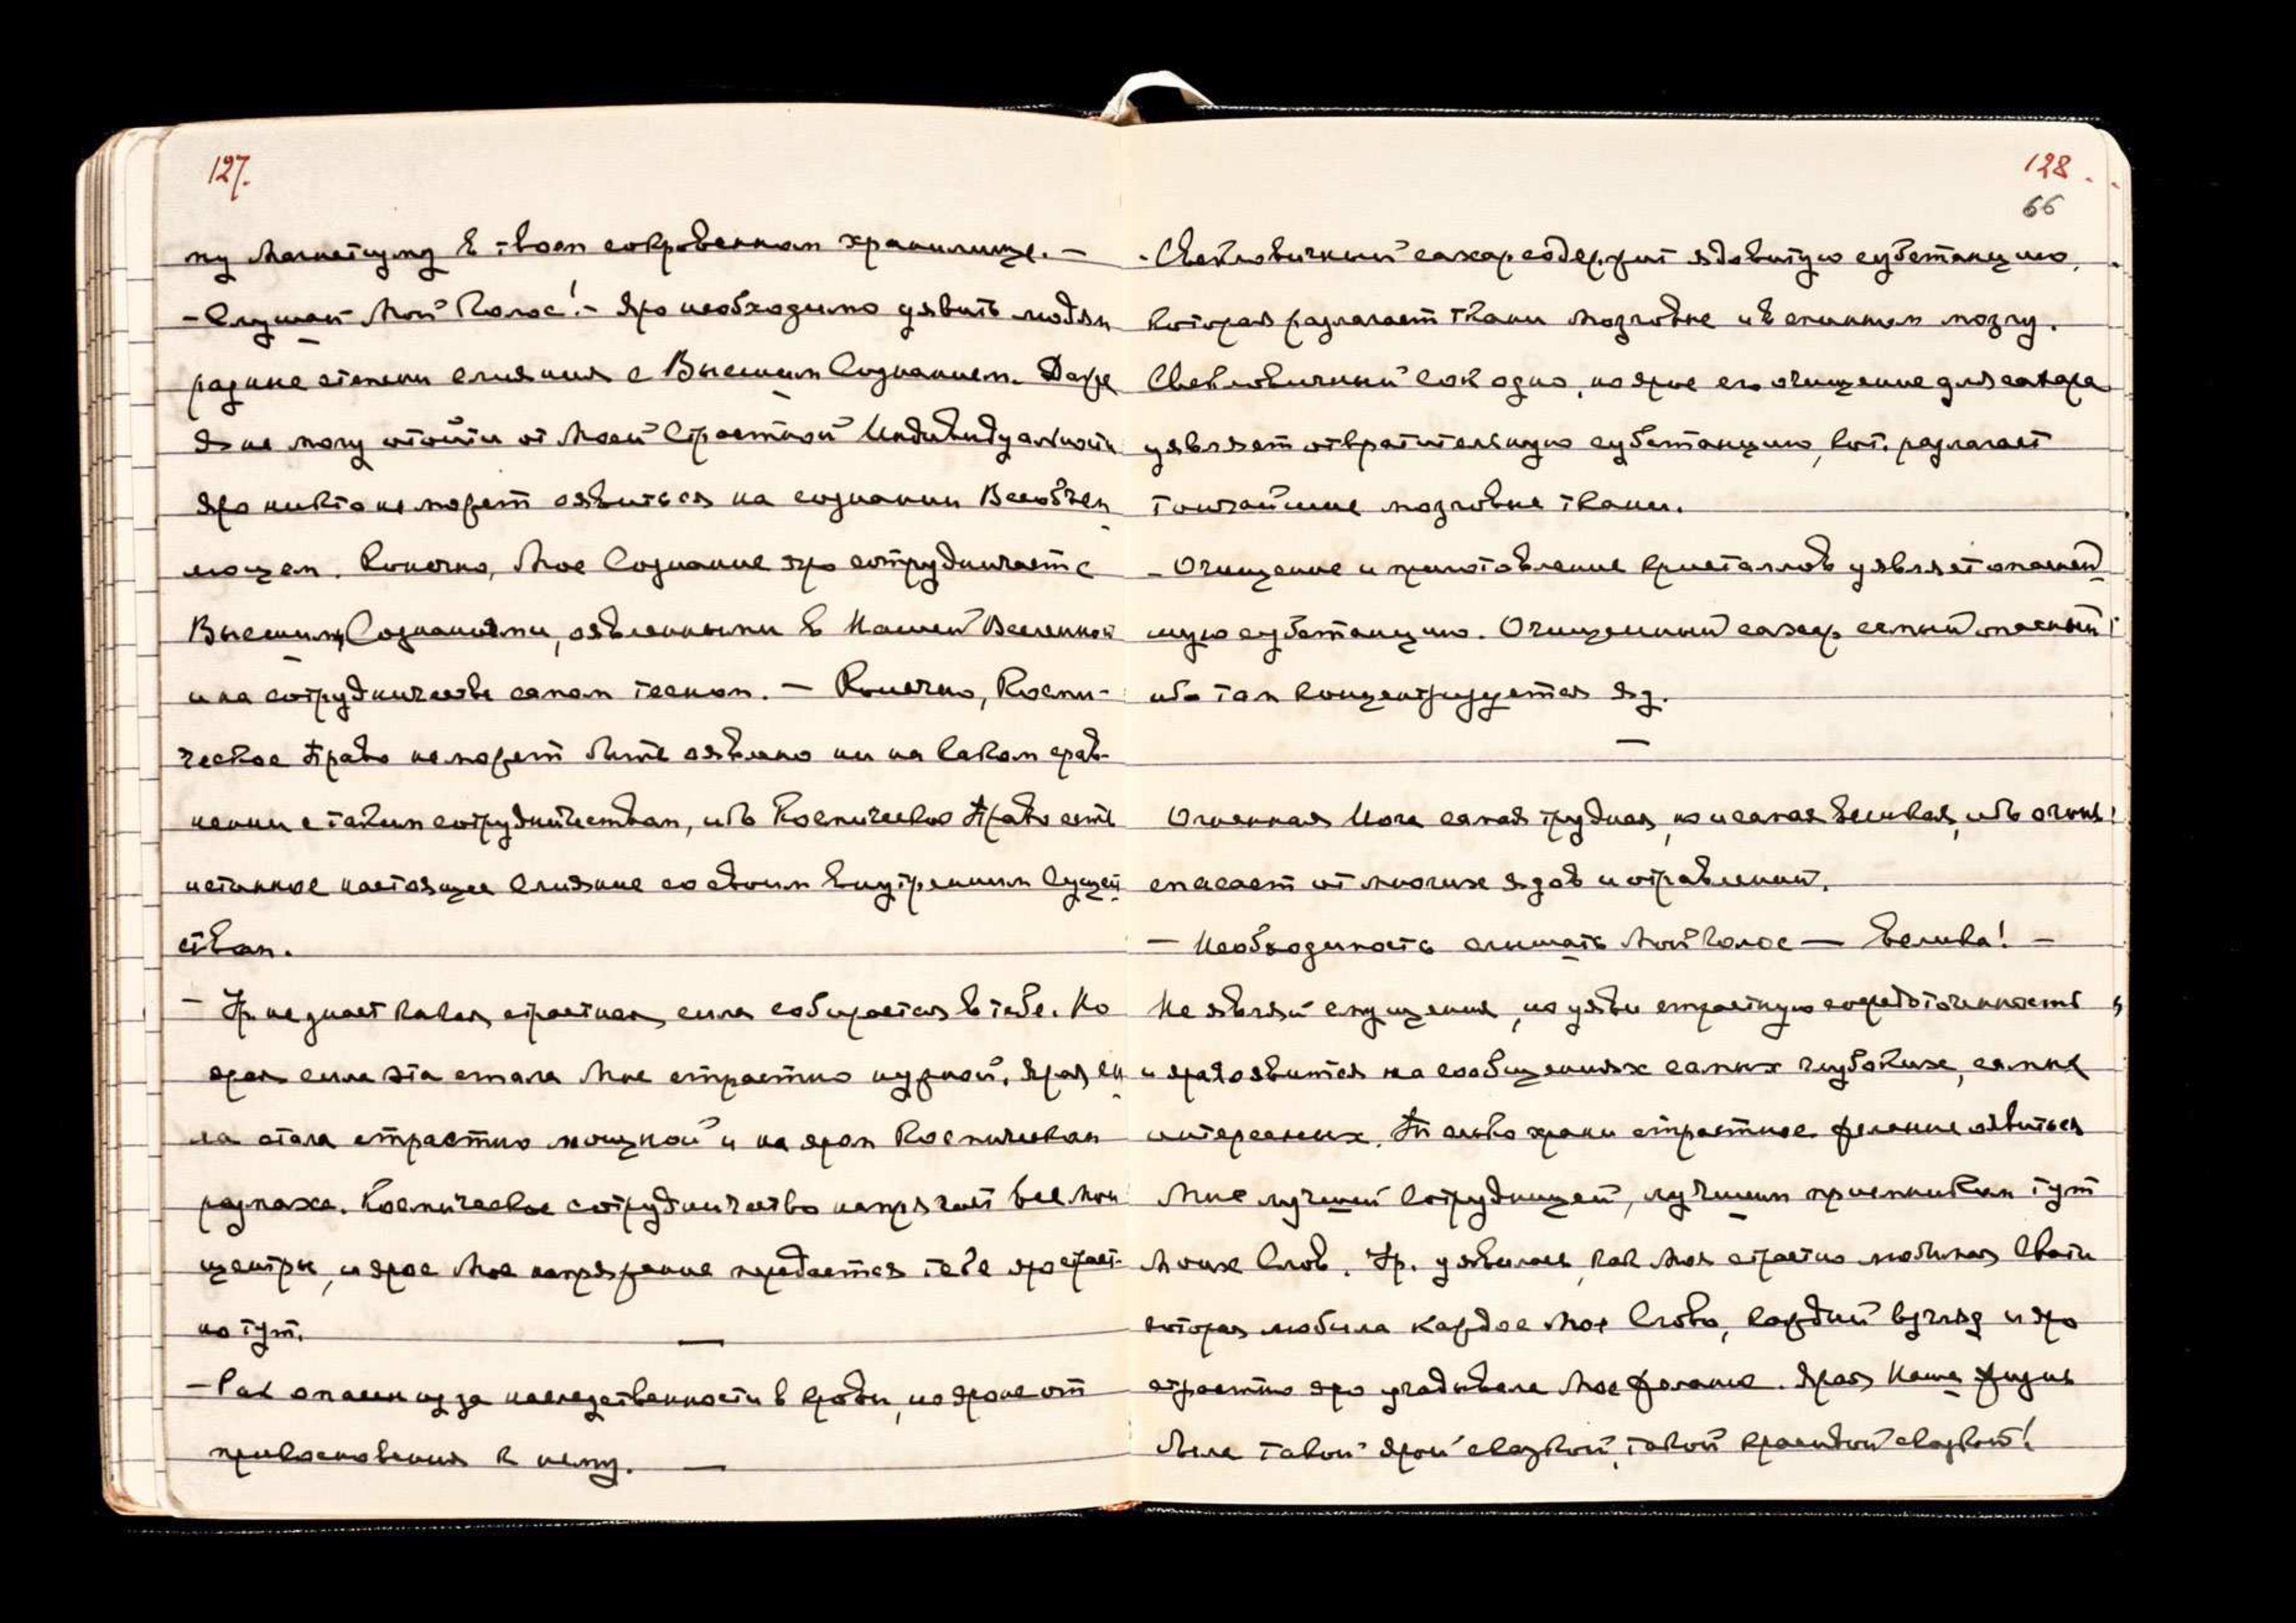 127.
му Магнетизму в твоем сокровенном хранилище. —
- Слушай Мой Голос! - Яро необходимо уявить людям
разные степени слияния с Высшим Сознанием. Даже
Я не могу отойти от Моей Страстной Индивидуальности
яро никто не может оявиться на сознании Всеобъем
лющем. Конечно, Мое Сознание яро сотрудничает с
Высшими Сознаниями, оявленными в Нашей Вселенной
и на сотрудничестве самом тесном. — Конечно, Косми-
ческое Право не может быть оявлено ни на каком срав-
нении с таким сотрудничеством, ибо Космическое Право есть
истинное настоящее слияние со своим Внутренним Сущест
ством.
- Ур. не знает какая страстная сила собирается в тебе. Но
ярая сила эта стала Мне страстно нужной. Ярая си
ла стала страстно мощной и на яром Космическом
размахе. Космическое сотрудничество напрягает все Мои
центры, и ярое Мое напряжение передается тебе яро страст-
но тут. —
- Рак опасен из за наследственности в крови, но яро не от
прикосновения к нему. —
128.
66
- Свекловичный сахар содержит ядовитую субстанцию,
которая разлагает ткани мозговые и в спинном мозгу.
Свекловичный сок одно, но ярое его очищение для сахара
уявляет отвратительную субстанцию, кот. разлагает
тончайшие мозговые ткани.
- Очищение и приготовление кристаллов уявляет опасней
шую субстанцию. Очищенный сахар самый опасный
ибо там концентрируется яд.
—
Огненная Йога самая трудная, но и самая великая, ибо огонь
спасает от многих ядов и отравлений.
— Необходимость слышать Мой Голос — велика! —
Не являй смущения, но уяви страстную сосредоточенность
и ярая оявится на сообщениях самых глубоких, самых
интересных. Только храни страстное желание оявиться
Мне лучшей сотрудницей, лучшим приемником тут
Моих Слов. Ур. уявилась, как Моя страстно любимая Свати
которая любила каждое Мое Слово, каждый взгляд и яро
страстно яро угадывала Мое желание. Ярая Наша жизнь
была такой ярой сказкой, такой красивой сказкой!